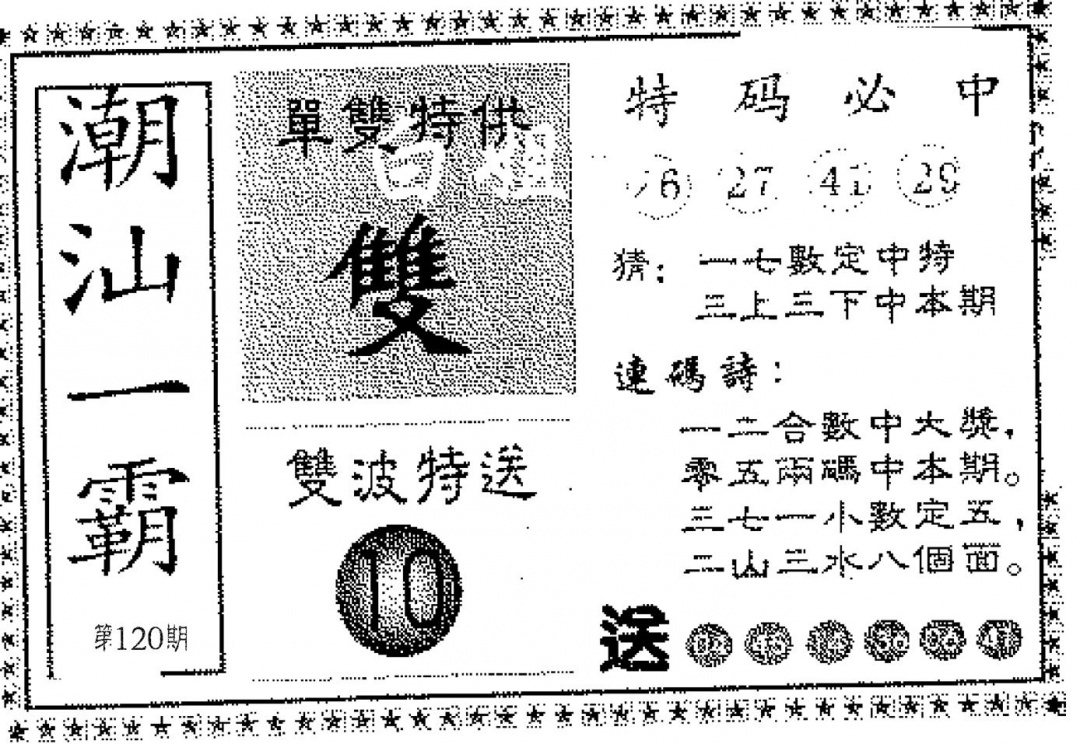 潮汕一霸
第120期
單雙特供
白姐
雙
雙波特送
10
特碼必中
27 41 29
猜：一七數定中特
三上三下中本期
連碼詩：
一二合數中大獎，
零五兩碼中本期。
三七一小數定五，
二山三水八個面。
送 45 14 06 41